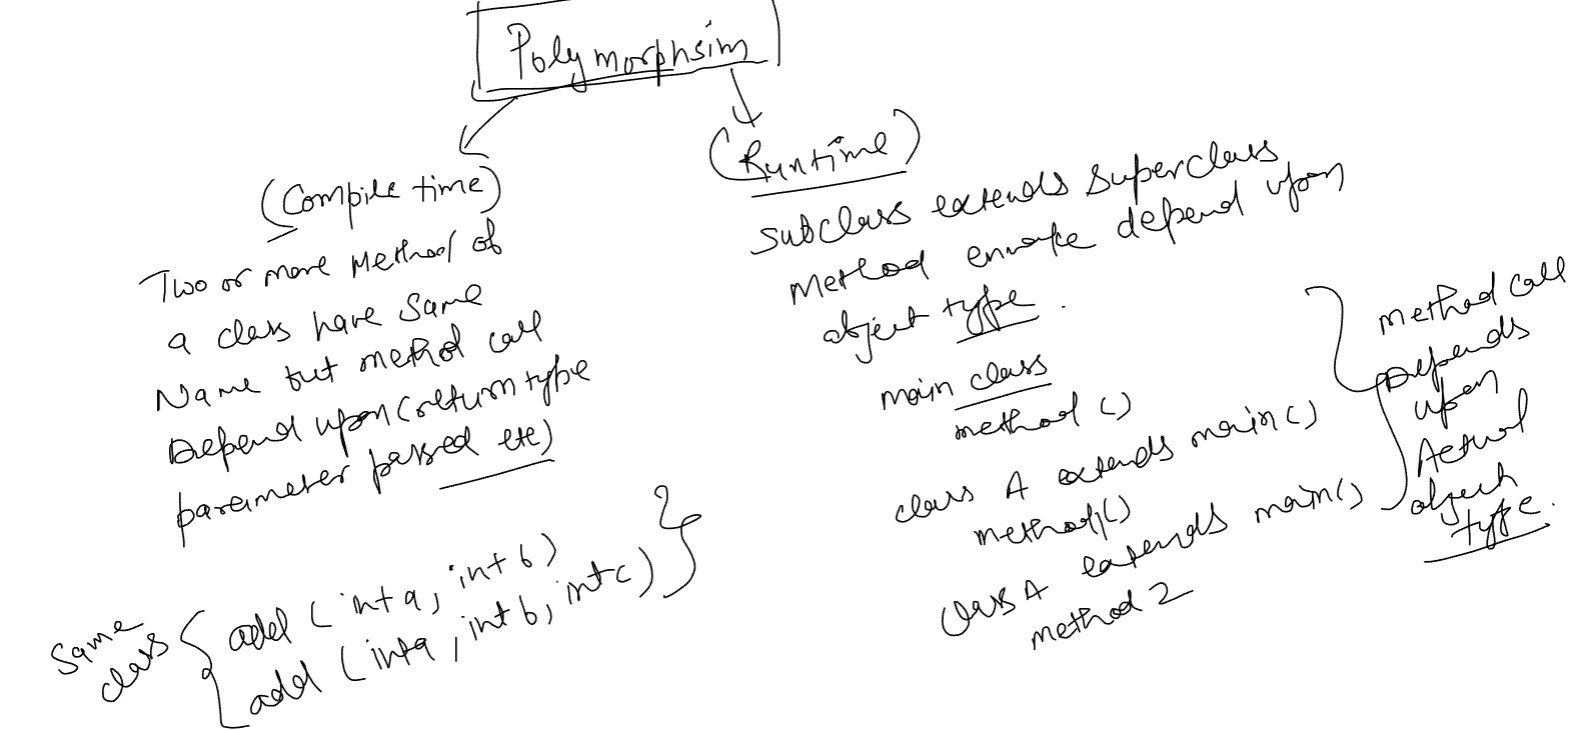 Polymorphsim
(Compile time)
Two or more Method of
a class have same
Name but method call
Depend upon (return type
parameter passed etc)
same
class
{ add ( int a, int b)
add ( int a, int b, int c) }
(Runtime)
subclass extends superclass
Method envoke depend upon
object type.
main class
method ()
class A extends main()
method1()
class A extends main()
method 2
method call
Depends
upon
Actual
object
type.